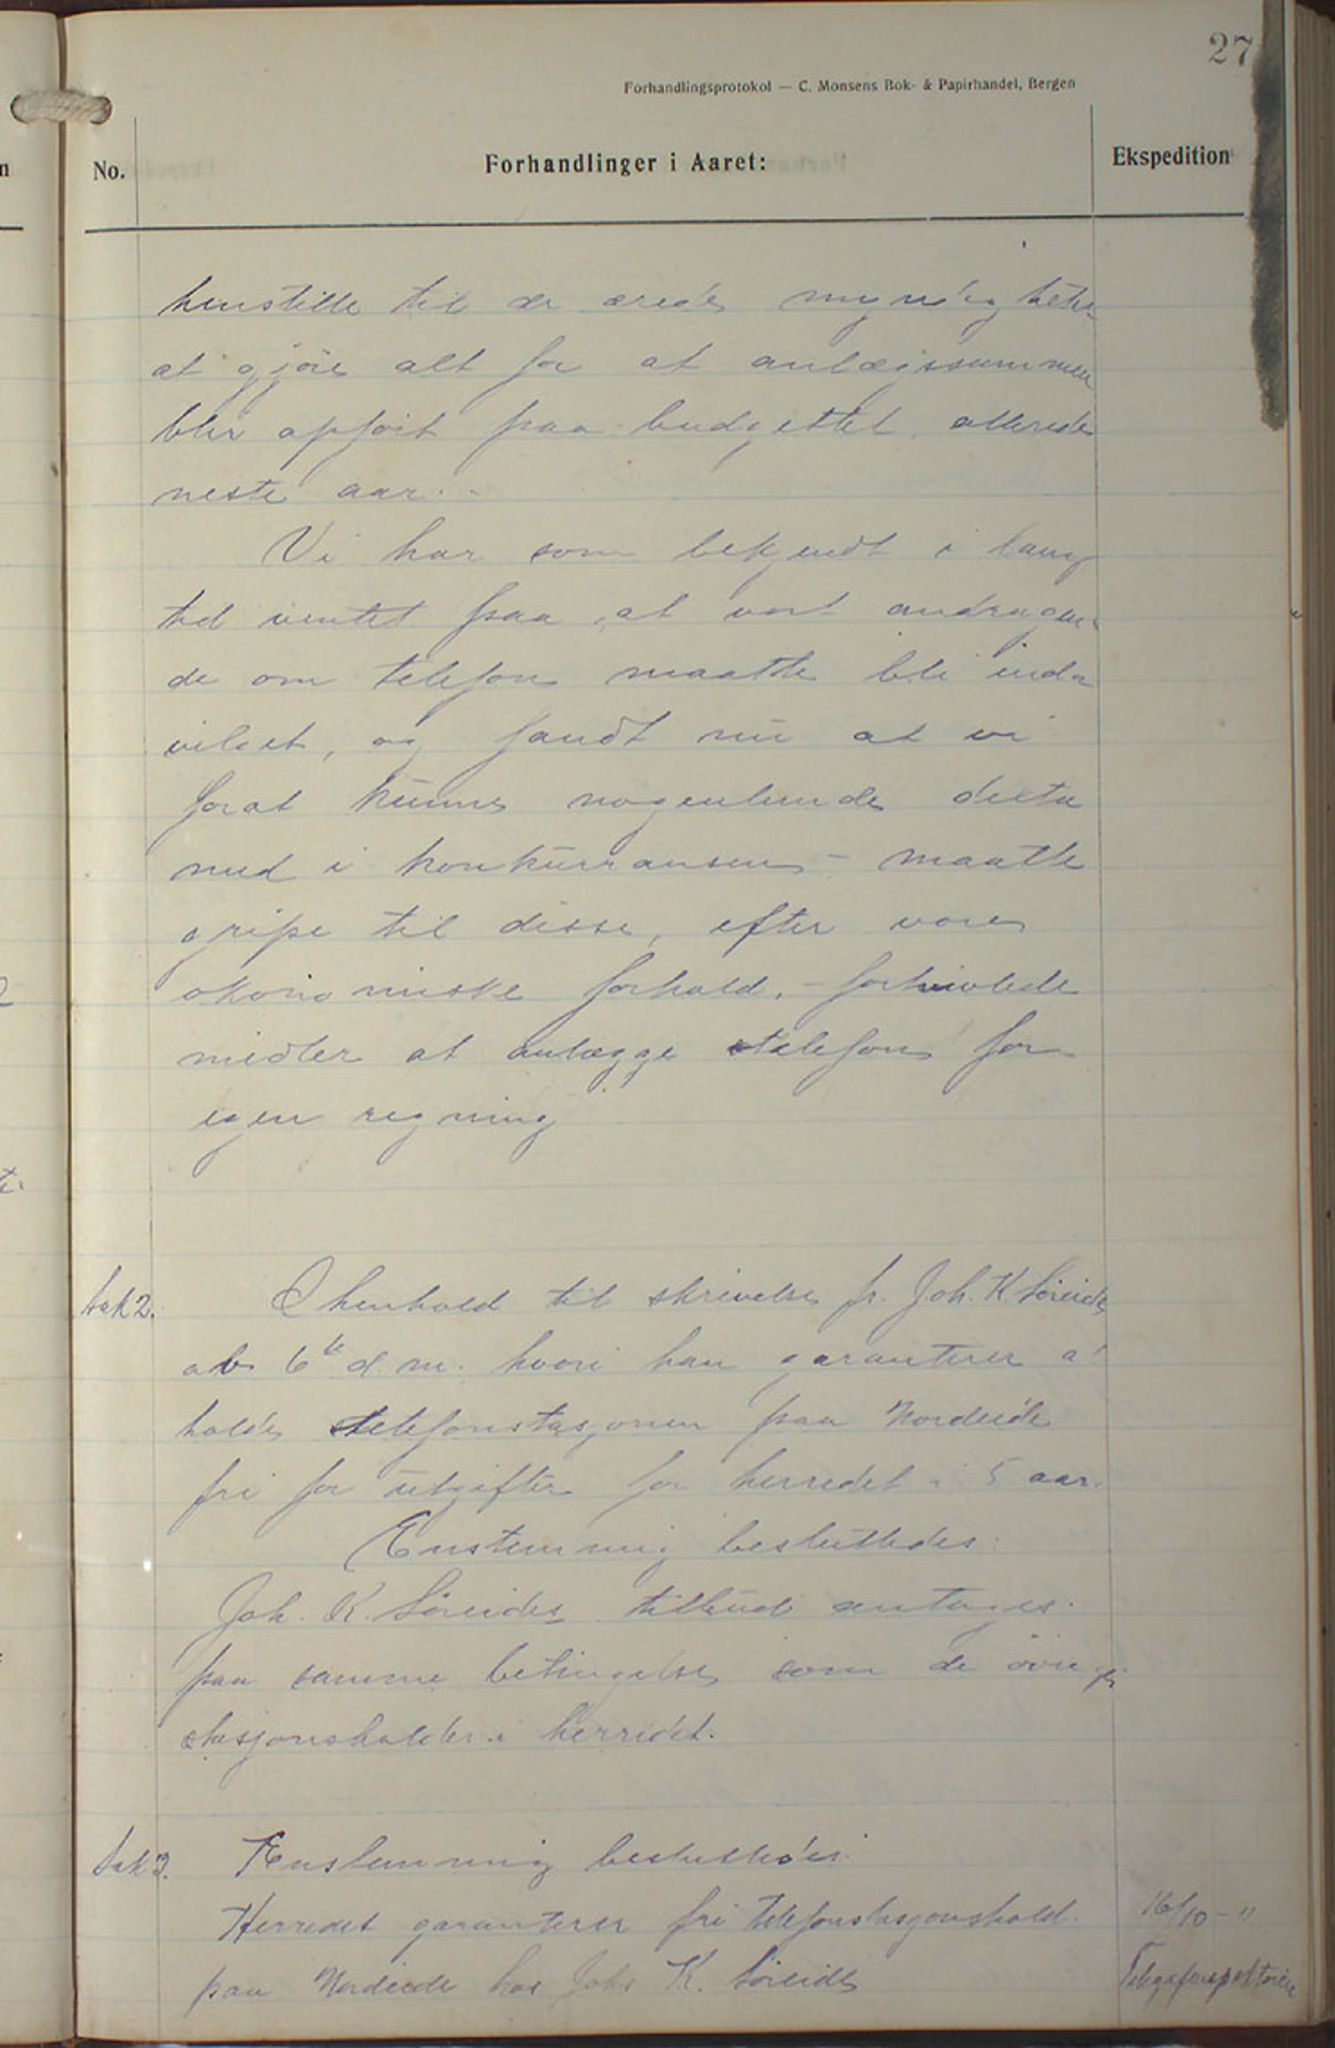 27
Forhandlingsprotokol — C. Monsens Bok- & Papirhandel, Bergen
No.
Forhandlinger i Aaret:
Ekspedition
henstille til de ærede myndigheter
at gjöre alt for at anlægssummen
blir opfört paa budgettet allerede
neste aar. -
Vi har som bekjendt i lang
tid ventet paa at vort andragen-
de om telefon maatte bli ind-
vilget, og fandt nu at vi
forat kunne nogenlunde delta
med i konkurransen - maatte
gripe til disse, efter vore
økonomiske forhold, - fortvivlede
midler at anlægge telefon for
egen regning
Sak 2.
I henhold til skrivelse fr. Joh. K Söreide
av 6te d. m. hvori han garanterer a
holde telefonstasjonen paa Nordeide
fri for utgifter for herredet i 5 aar.
Enstemmig besluttedes:
Joh. K. Söreides tilbud antages
paa samme betingelser som de övrige
stasjonsholder i herredet.
Sak 3.
Enstemmig besluttedes:
Herredet garanterer fri telefonstasjonshold
paa Nordeide hos Johs K. Söreide
16/10 - 11
Telegrafinspektören